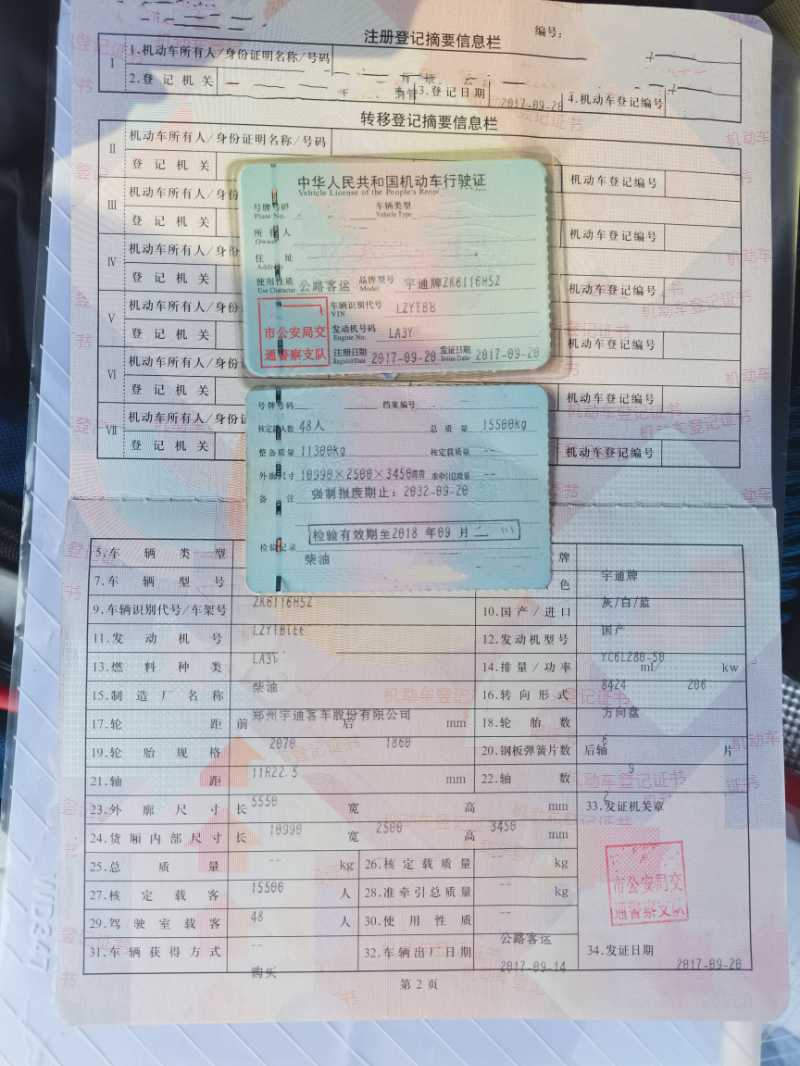 注册登记摘要信息栏
编号:
I 1.机动车所有人/身份证明名称/号码
2.登记机关 3.登记日期 2017-09-20 4.机动车登记编号
转移登记摘要信息栏
II 机动车所有人/身份证明名称/号码
登记机关 机动车登记编号
III 机动车所有人/身份
登记机关 机动车登记编号
IV 机动车所有人/身份
登记机关 机动车登记编号
V 机动车所有人/身份
登记机关 机动车登记编号
VI 机动车所有人/身份证
登记机关 机动车登记编号
VII 机动车所有人/身份证
登记机关 机动车登记编号
中华人民共和国机动车行驶证
Vehicle License of the People's Repu
号牌号码 车辆类型
Plate No. Vehicle Type
所有人
Owner
住址
Address
使用性质 公路客运 品牌型号 宇通牌ZK6116H5Z
Use Character Model
市公安局交
通警察支队
车辆识别代号
VIN
发动机号码 LA3Y
Engine No.
注册日期 2017-09-20 发证日期 2017-09-20
Register Date Issue Date
号牌号码 档案编号
核定载人数 48人 总质量 15500kg
整备质量 11300kg 核定载质量 --
外廓尺寸 10990×2500×3450mm 准牵引总质量 --
备注 强制报废期止:2032-09-20
检验有效期至2018 年09 月
检验记录
柴油
5.车辆类型 牌 宇通牌
7.车辆型号 ZK6116H5Z 色 灰/白/蓝
9.车辆识别代号/车架号 10.国产/进口 国产
11.发动机号 LA3Y 12.发动机型号 YC6L280-50
13.燃料种类 柴油 14.排量/功率 8424 ml/ 206 kw
15.制造厂名称 郑州宇通客车股份有限公司 16.转向形式 方向盘
17.轮距 前 2070 后 1860 mm 18.轮胎数 6
19.轮胎规格 11R22.5 20.钢板弹簧片数 后轴 9 片
21.轴距 5550 mm 22.轴数 2
23.外廓尺寸 长 10990 宽 2500 高 3450 mm 33.发证机关章
24.货厢内部尺寸 长 -- 宽 -- 高 -- mm
25.总质量 15500 kg 26.核定载质量 -- kg
27.核定载客 48 人 28.准牵引总质量 -- kg
29.驾驶室载客 -- 人 30.使用性质 公路客运
31.车辆获得方式 购买 32.车辆出厂日期 2017-09-14
市公安局交
通警察支队
34.发证日期 2017-09-20
第2页